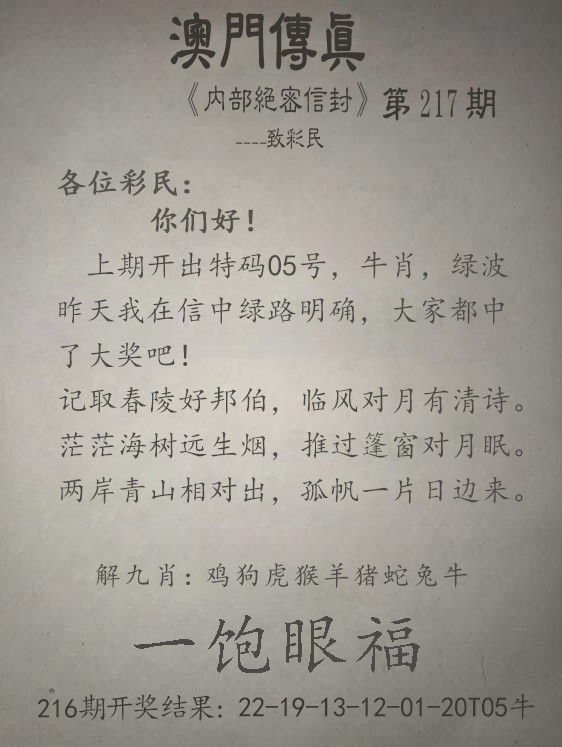 澳門傳眞
《内部絕密信封》第217期
----致彩民
各位彩民：
你们好！
上期开出特码05号，牛肖，绿波
昨天我在信中绿路明确，大家都中
了大奖吧！
记取春陵好邦伯，临风对月有清诗。
茫茫海树远生烟，推过篷窗对月眠。
两岸青山相对出，孤帆一片日边来。
解九肖：鸡狗虎猴羊猪蛇兔牛
一饱眼福
216期开奖结果：22-19-13-12-01-20T05牛